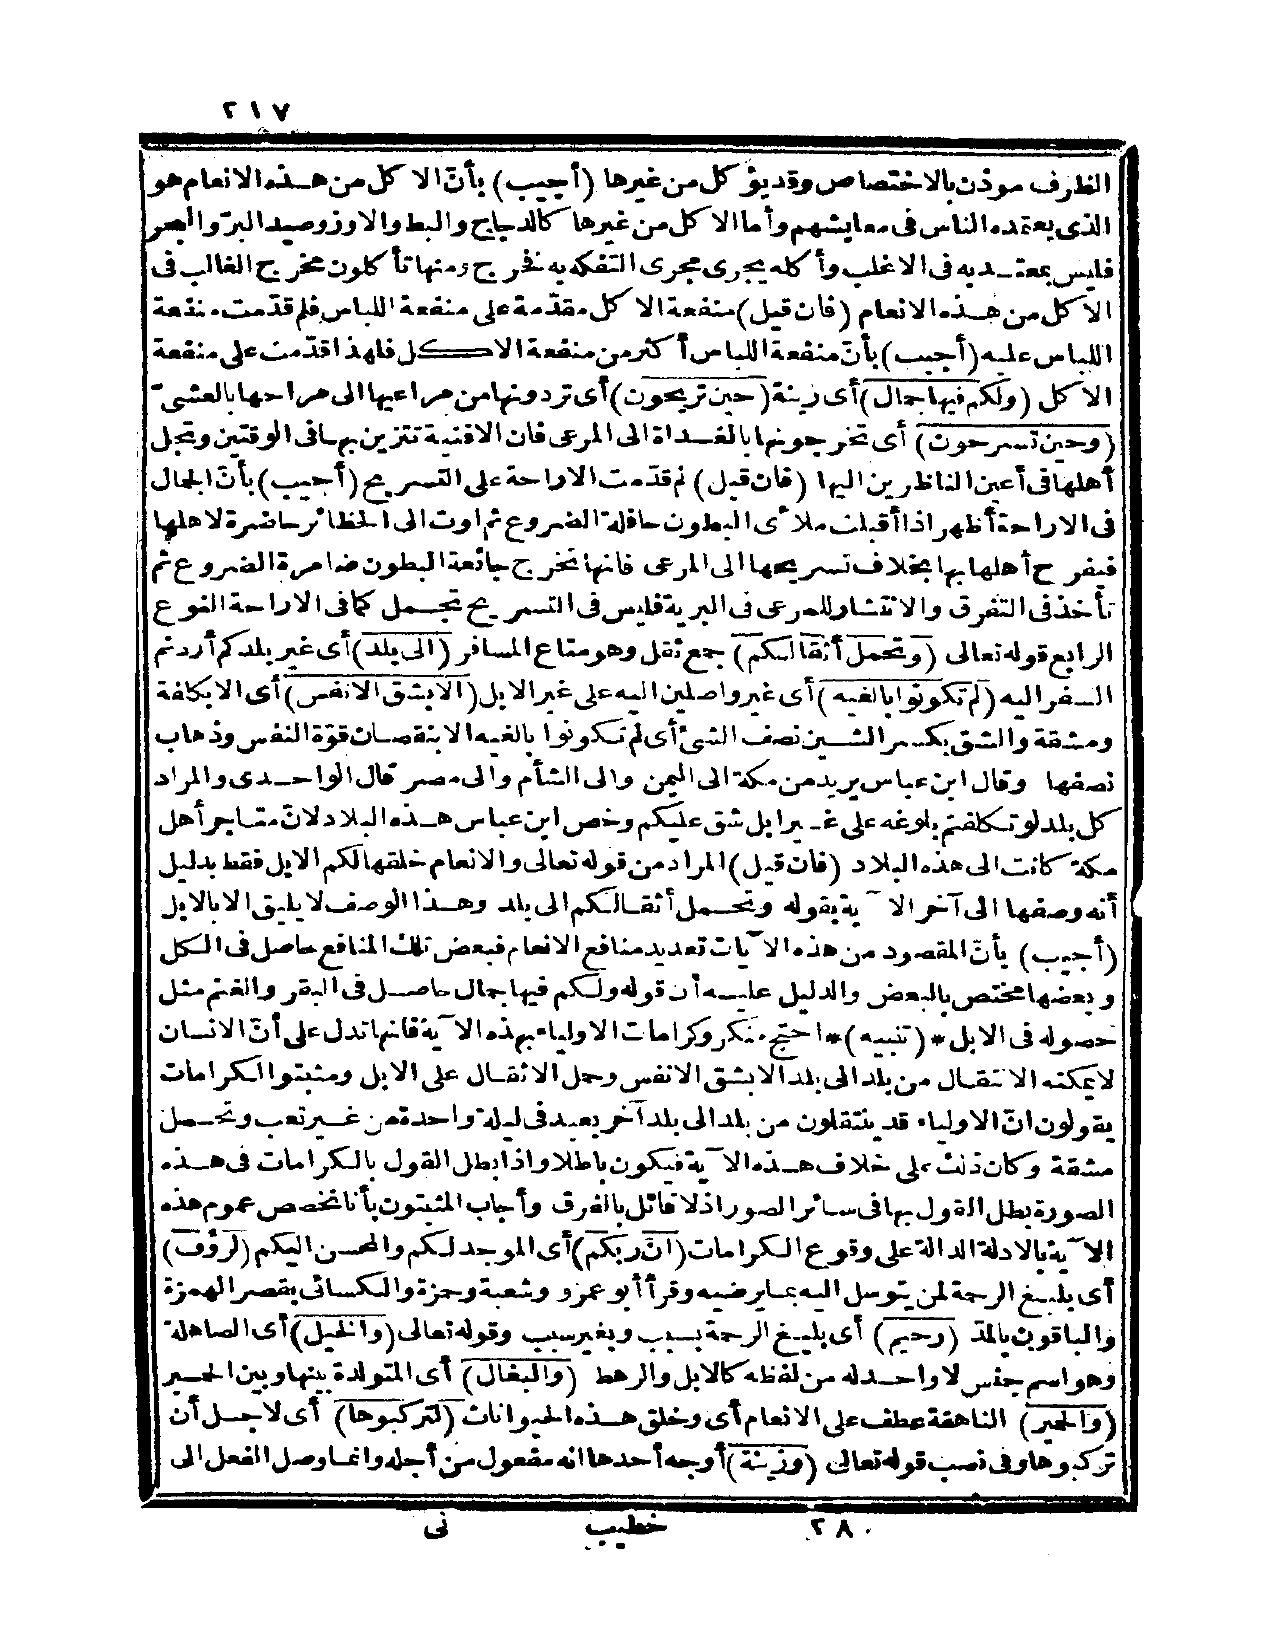 ٢١٧
الظرف موذن بالاختصاص وقد يؤكل من غيرها (أجيب) بأنّ الاكل من هذه الانعام هو
الذى يعتمده الناس فى معايشهم وأما الاكل من غيرها كالدجاج والبط والاوز وصيد البرّ والبحر
فليس بمعتد به فى الاغلب وأكله يجرى مجرى التفكه به فخرج ومنها تأكلون مخرج الغالب فى
الاكل من هذه الانعام (فان قيل) منفعة الاكل مقدّمة على منفعة اللباس فلم قدّمت منفعة
اللباس عليه (أجيب) بأنّ منفعة اللباس أكثر من منفعة الاكل فلهذا قدّمت على منفعة
الاكل (ولكم فيها جمال) أى زينة (حين تريحون) أى تردونها من مراعيها الى مراحها بالعشىّ
(وحين تسرحون) أى تخرجونها بالغداة الى المرعى فان الافنية تتزين بها فى الوقتين وتجل
أهلها فى أعين الناظرين اليها (فان قيل) لم قدّمت الاراحة على التسريح (أجيب) بأنّ الجمال
فى الاراحة أظهر اذا أقبلت ملأى البطون حافلة الضروع ثم اوت الى الحظائر حاضرة لاهلها
فيفرح أهلها بها بخلاف تسريحها الى المرعى فانها تخرج جائعة البطون ضامرة الضروع ثم
تأخذ فى التفرق والانتشار للمرعى فى البرية فليس فى التسريح تجمل كما فى الاراحة النوع
الرابع قوله تعالى (وتحمل أثقالكم) جمع ثقل وهو متاع المسافر (الى بلد) أى غير بلدكم أردتم
السفر اليه (لم تكونوا بالغيه) أى غير واصلين اليه على غير الابل (الا بشق الانفس) أى الا بكلفة
ومشقة والشق بكسر الشين نصف الشئ أى لم تكونوا بالغيه الا بنقصان قوّة النفس وذهاب
نصفها وقال ابن عباس يريد من مكة الى اليمن والى الشأم والى مصر قال الواحدى والمراد
كل بلد لو تكلفتم بلوغه على غير ابل شق عليكم وخص ابن عباس هذه البلاد لانّ متاجر أهل
مكة كانت الى هذه البلاد (فان قيل) المراد من قوله تعالى والانعام خلقها لكم الابل فقط بدليل
أنه وصفها الى آخر الآية بقوله وتحمل أثقالكم الى بلد وهذا الوصف لا يليق الا بالابل
(أجيب) بأنّ المقصود من هذه الآيات تعديد منافع الانعام فبعض تلك المنافع حاصل فى الكل
وبعضها مختص بالبعض والدليل عليه أن قوله ولكم فيها جمال حاصل فى البقر والغنم مثل
حصوله فى الابل *(تنبيه)* احتج منكر وكرامات الاولياء بهذه الآية فانها تدل على أنّ الانسان
لا يمكنه الانتقال من بلد الى بلد الا بشق الانفس وحمل الاثقال على الابل ومثبتوا الكرامات
يقولون انّ الاولياء قد ينتقلون من بلد الى بلد آخر بعيد فى ليلة واحدة من غير تعب وتحمل
مشقة وكان ذلك على خلاف هذه الآية فيكون باطلا واذا بطل القول بالكرامات فى هذه
الصورة بطل القول بها فى سائر الصور اذ لا قائل بالفرق وأجاب المثبتون بأنا نخصص عموم هذه
الآية بالادلة الدالة على وقوع الكرامات (انّ ربكم) أى الموجد لكم والمحسن اليكم (لرؤف)
أى بليغ الرحمة لمن يتوسل اليه بما يرضيه وقرأ أبو عمرو وشعبة وحمزة والكسائى بقصر الهمزة
والباقون بالمدّ (رحيم) أى بليغ الرحمة بسبب وبغير سبب وقوله تعالى (والخيل) أى الصاهلة
وهو اسم جنس لا واحد له من لفظه كالابل والرهط (والبغال) أى المتولدة بينها وبين الحمير
(والحمير) الناهقة عطف على الانعام أى وخلق هذه الحيوانات (لتركبوها) أى لاجل أن
تركبوها وفى نصب قوله تعالى (وزينة) أوجه أحدها انه مفعول من أجله وانما وصل الفعل الى
٢٨ خطيب نى